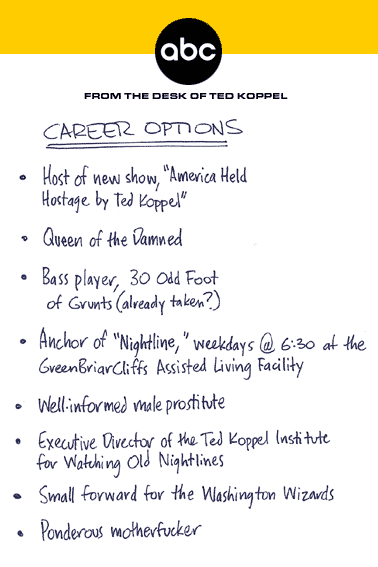 abc
FROM THE DESK OF TED KOPPEL
CAREER OPTIONS
• Host of new show, "America Held
Hostage by Ted Koppel"
• Queen of the Damned
• Bass player, 30 Odd Foot
of Grunts (already taken?)
• Anchor of "Nightline," weekdays @ 6:30 at the
GreenBriarCliffs Assisted Living Facility
• Well-informed male prostitute
• Executive Director of the Ted Koppel Institute
for Watching Old Nightlines
• Small forward for the Washington Wizards
• Ponderous motherfucker